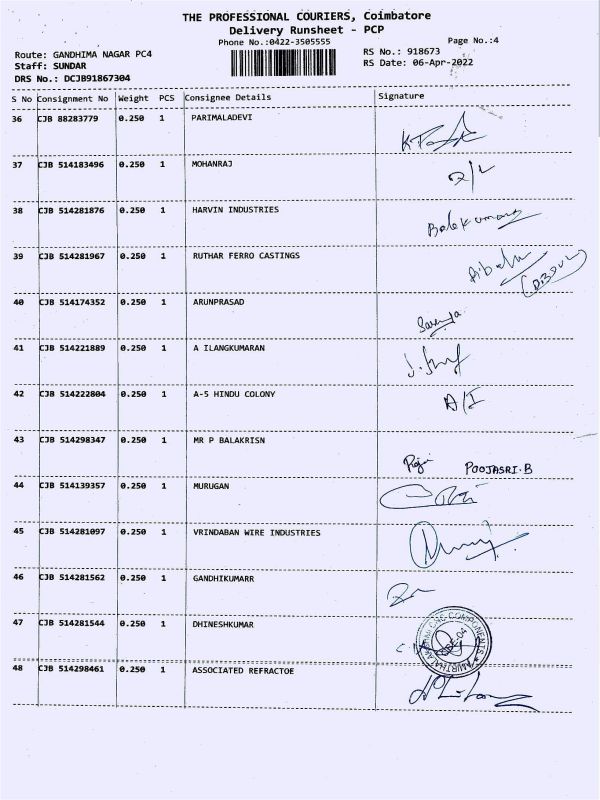 THE PROFESSIONAL COURIERS, Coimbatore
Delivery Runsheet - PCP
Phone No.:0422-3505555
Page No.:4
Route: GANDHIMA NAGAR PC4
RS No.: 918673
Staff: SUNDAR
RS Date: 06-Apr-2022
DRS No.: DCJB91867304
S No Consignment No Weight PCS Consignee Details Signature
36 CJB 88283779 0.250 1 PARIMALADEVI
37 CJB 514183496 0.250 1 MOHANRAJ
38 CJB 514281876 0.250 1 HARVIN INDUSTRIES
Balakumar
39 CJB 514281967 0.250 1 RUTHAR FERRO CASTINGS
40 CJB 514174352 0.250 1 ARUNPRASAD
41 CJB 514221889 0.250 1 A ILANGKUMARAN
42 CJB 514222804 0.250 1 A-5 HINDU COLONY
A/I
43 CJB 514298347 0.250 1 MR P BALAKRISN
POOJASRI.B
44 CJB 514139357 0.250 1 MURUGAN
45 CJB 514281097 0.250 1 VRINDABAN WIRE INDUSTRIES
46 CJB 514281562 0.250 1 GANDHIKUMARR
47 CJB 514281544 0.250 1 DHINESHKUMAR
CNC COMPONENTS
48 CJB 514298461 0.250 1 ASSOCIATED REFRACTOE